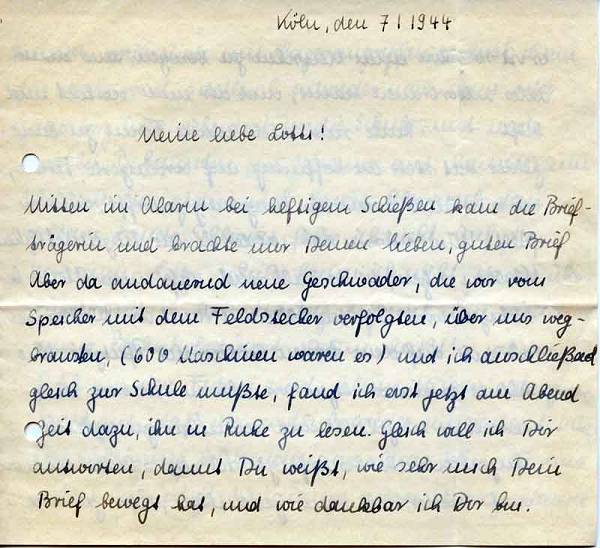 Köln, den 7 I 1944
Meine liebe Lotte!
Mitten im Alarm bei heftigem Schießen kam die Brief-
trägerin und brachte mir Deinen lieben, guten Brief
Aber da andauernd neue Geschwader, die wir vom
Speicher mit dem Feldstecher verfolgten, über uns weg-
brausten, (600 Maschinen waren es) und ich anschließend
gleich zur Schule mußte, fand ich erst jetzt am Abend
Zeit dazu, ihn in Ruhe zu lesen. Gleich will ich Dir
antworten, damit Du weißt, wie sehr mich Dein
Brief bewegt hat, und wie dankbar ich Dir bin.